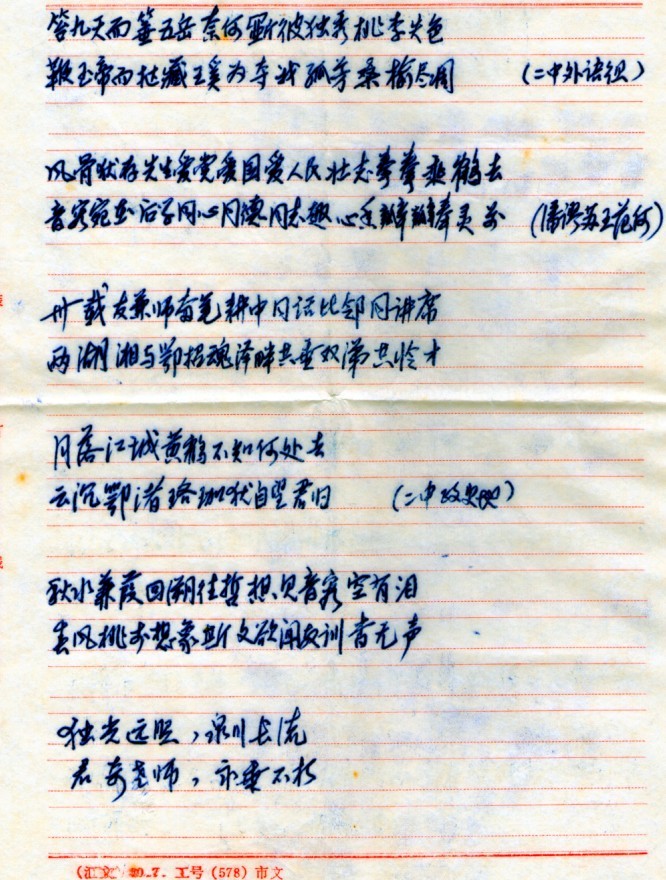 答九天而 五岳奈何 彼独秀桃李失色
鞭玉帝而挞藏王奚为夺我孤芳桑榆尽凋 (二中外语组)
风骨犹存先生爱党爱国爱人民壮志 乘鹤去
音容宛在后学同心同德同志趣心香瓣瓣奉灵前 (潘 苏王范何)
卅载友兼师奋笔耕中同话比邻同讲席
两湖湘与鄂招魂泽畔共垂双涕共怜才
月落江城黄鹤不知何处去
云沉鄂渚珞珈犹自望君归 (二中政史地)
秋水蒹葭回溯往哲想见音容空有泪
春风桃李想象斯文欲闻教训杳无声
独光远照,泉川长流
君安老师,永垂不朽
(汇文) 80.7. 工号 (578) 市文